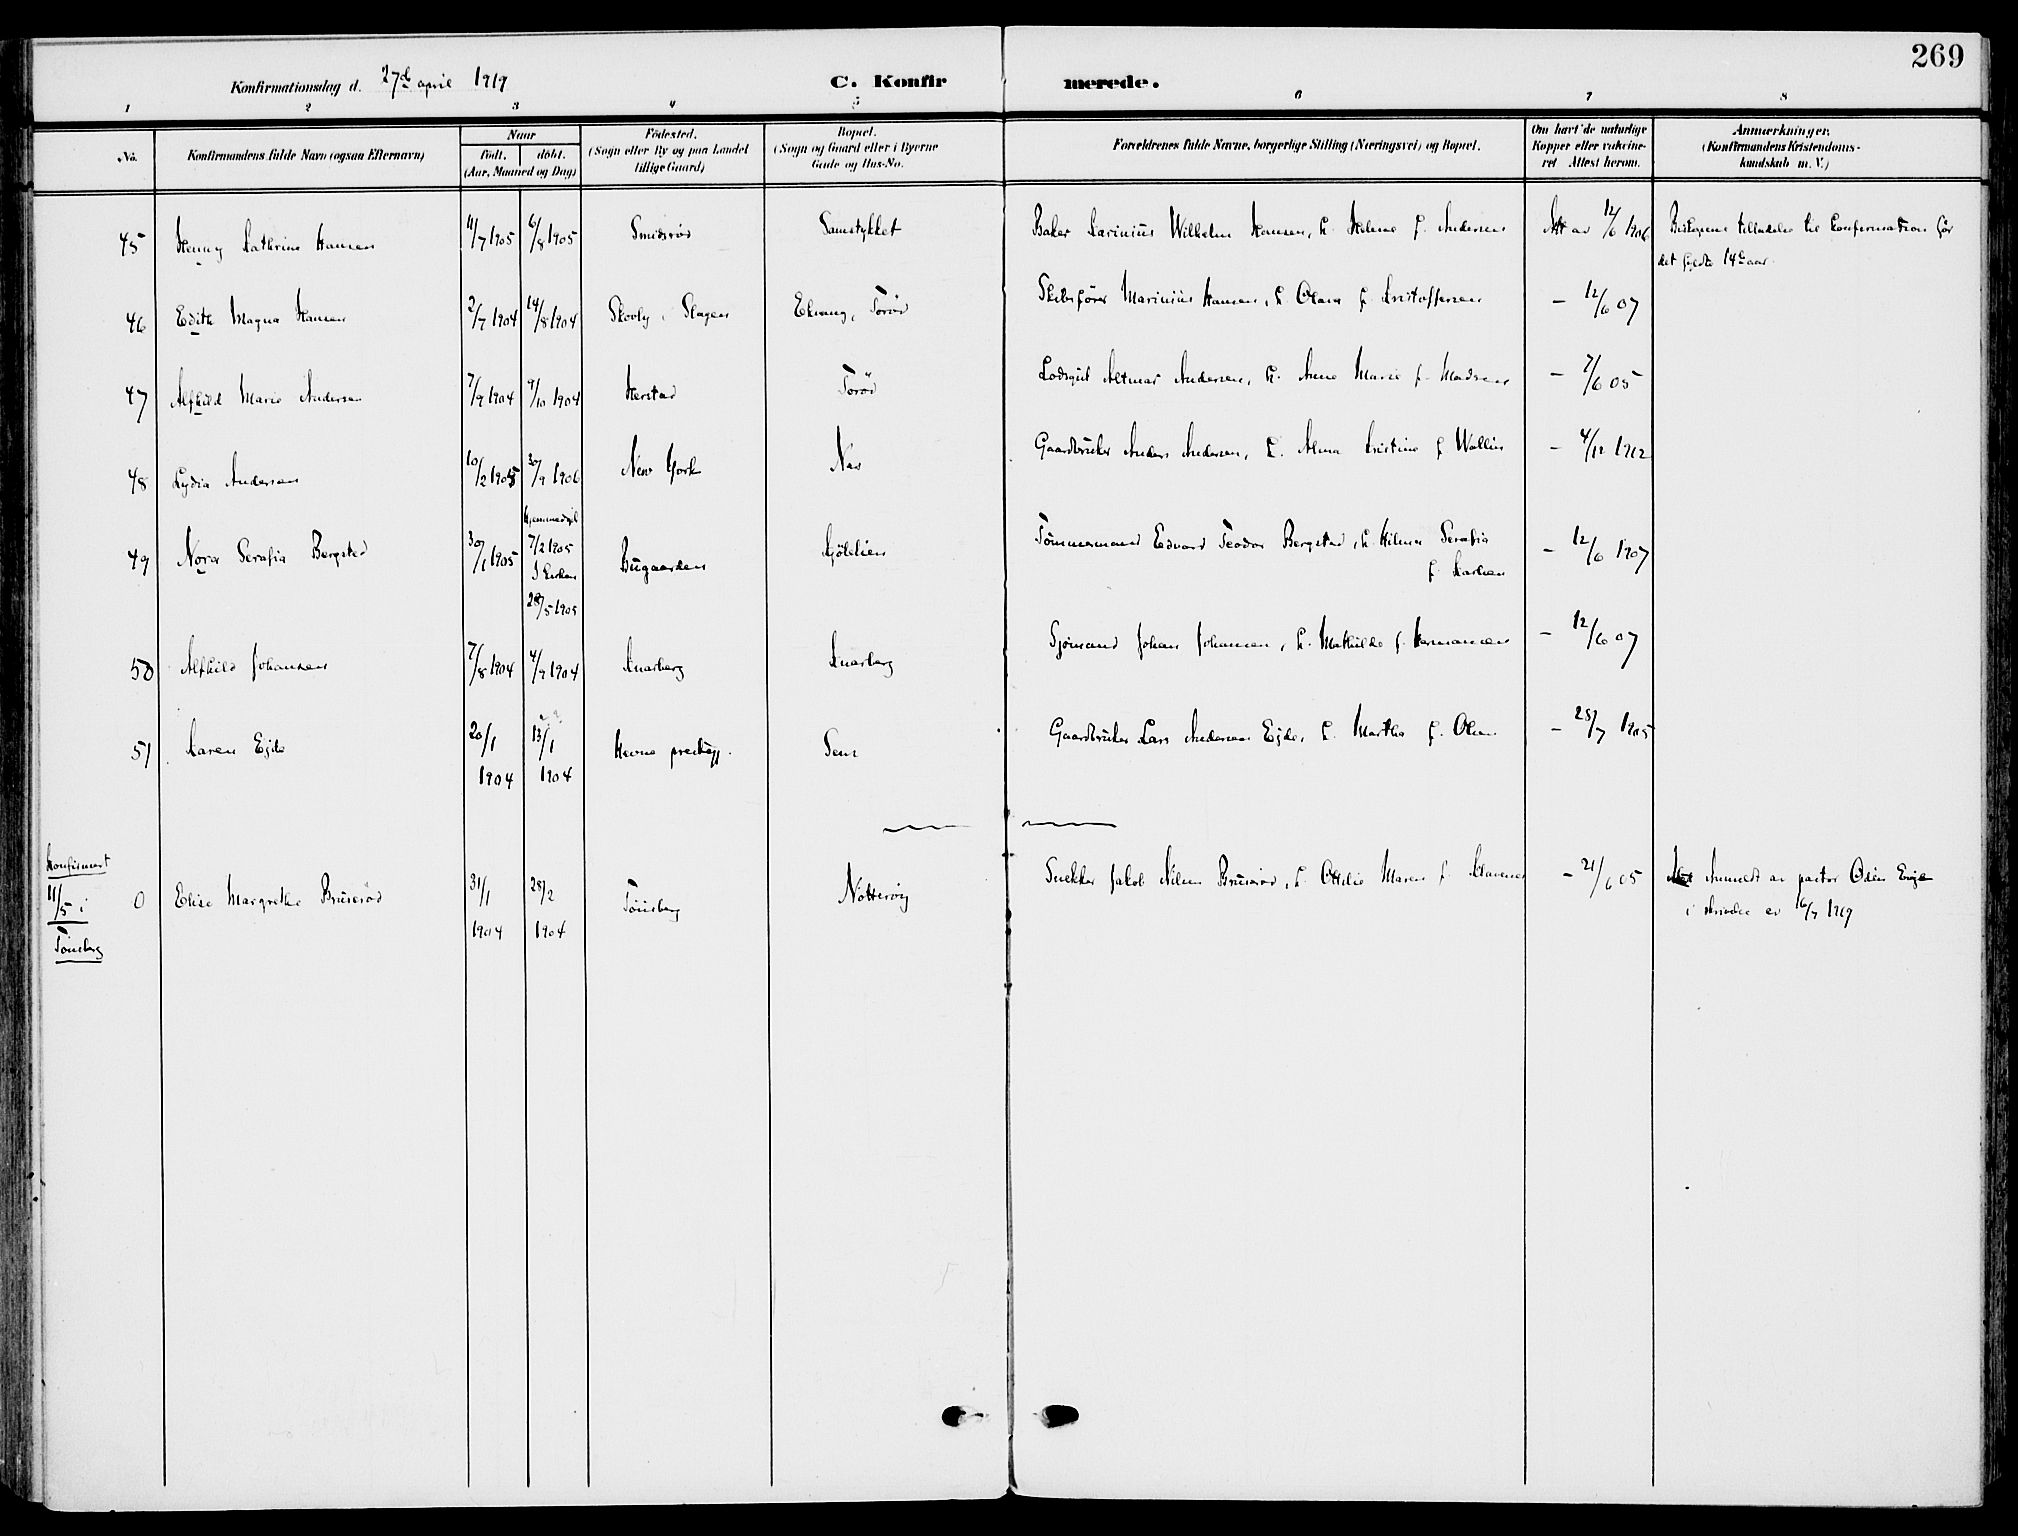 269
Konfirmationsdag d. 27de april 1919
C. Konfirmerede.
1 2 3 4 5 6 7 8
No. Konfirmandens fulde Navn (ogsaa Efternavn)
Naar
födt. döbt.
(Aar, Maaned og Dag)
Födested.
(Sogn eller By og paa Landet
tillige Gaard)
Bopæl.
(Sogn og Gaard eller i Byerne
Gade og Hus-No.
Forældrenes fulde Navne, borgerlige Stilling (Næringsvei) og Bopæl.
Om havt de naturlige
Kopper eller vakcine-
ret Attest herom.
Anmærkninger.
(Konfirmandens Kristendoms-
kundskab m. V.)
45 Henny Kathrine Hansen 11/7 1905 6/8 1905 Smidsröd Samstykket Baker Karinius Wilhelm Hansen, h. Helene f. Andersen Att av 12/6 1906 Biskopens tilladelse til konfirmation för
det fyldte 14de aar.
46 Edith Magna Hansen 2/7 1904 14/8 1904 Skovly i Slagen Ekvang, Torød Skibsförer Marinius Hansen, h. Olava f. Kristoffersen – 12/6 07
47 Alfhild Marie Andersen 7/9 1904 9/10 1904 Herstad Torød Lodsgut Altmar Andersen, h. Anne Marie f. Madsen – 7/6 05
48 Lydia Andersen 10/2 1905 30/9 1906 New York Nes Gaardbruker Anders Andersen, h. Alma Kristine f. Wallin – 4/12 1912
49 Nora Serafia Bergsted 30/1 1905 Hjemmedøpt
7/2 1905
I kirken
28/5 1905 Bugaarden Kjölelien Tömmermand Edvard Teodor Bergsted, h. Hilma Serafia
f. Karlsen – 12/6 1907
50 Alfhild Johansen 7/8 1904 4/9 1904 Knarberg Knarberg Sjömand Johan Johansen, h. Mathilde f. Hermansen – 12/6 07
51 Karen Ejde 20/1
1904 13/1
1904 Hevne prestegj. Sem Gaardbruker Lars Andersen Ejde, h. Martha f. Olsen – 28/7 1905
Konfirmert
11/5 i
Tönsberg
0 Elise Margrethe Bruseröd 31/1
1904 28/2
1904 Tönsberg Nötteröy Snekker Jakob Nilsen Bruseröd, h. Ottilie Maren f. Klavenes – 21/6 05 Anmeldt av pastor Odin Enge
i skrivelse av 16/7 1919